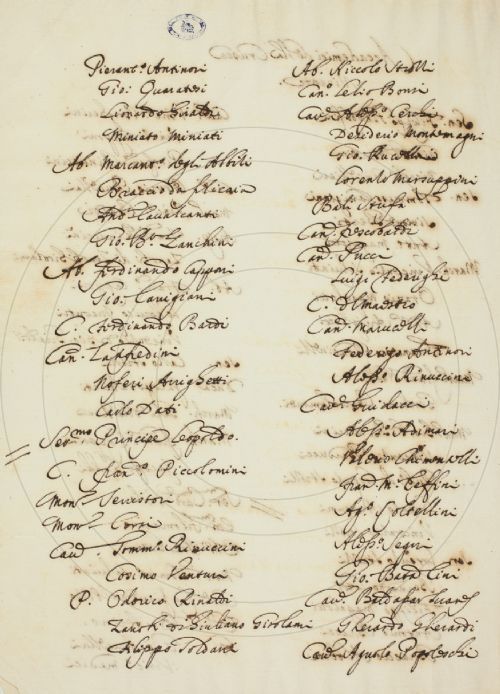 Pierant.º Antinori
Gio: Quaratesi
Lionardo Giraldi
Miniato Miniati
Ab. Marcant.º degli Albizi
And.ª Cavalcanti
Gio: B.ª Zanchini
Ab. Ferdinando Capponi
Gio: Canigiani
C. Ferdinando Bardi
Can. Lanfredini
Noferi Arrighetti
Carlo Dati
Ser.mo Principe Leopoldo.
C. Fran.º Piccolomini
Mon.r Serristori
Mon.r Corsi
Cav. Tomm.º Rinuccini
Cosimo Venturi
P. Odorico Rinaldi
Zanobi di Giuliano Girolami
Filippo Soldani
Ab. Niccolo Strozzi
Can.º Lelio Bonsi
Cav. Aless.º Cerchi
Desiderio Montemagni
Gio: Rucellai
Lorenzo Marsuppini
Balì Stufa
Can. Frescobaldi
Can. Pucci
Luigi Federighi
C. Del Maestro
Can. Marucelli
Federigo Antinori
Aless.º Rinuccini
Cav. Guidacci
Aless.º Adimari
Valerio Chimentelli
Fran M.ª Ceffini
Ag.º Coltellini
Aless.º Segni
Gio: Batta
Cav. Baldassar Suares
Gherardo Gherardi
Cav. Agnolo Popoleschi